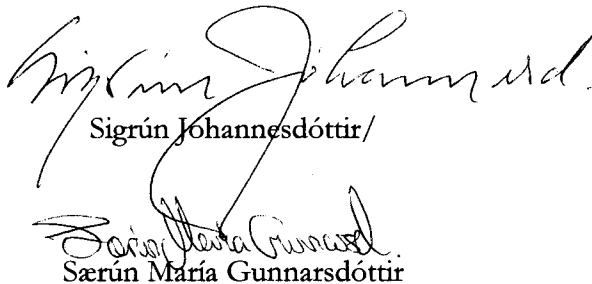 Sigrún Jóhannesd.
Sigrún Jóhannesdóttir/
Særún María Gunnarsd.
Særún María Gunnarsdóttir